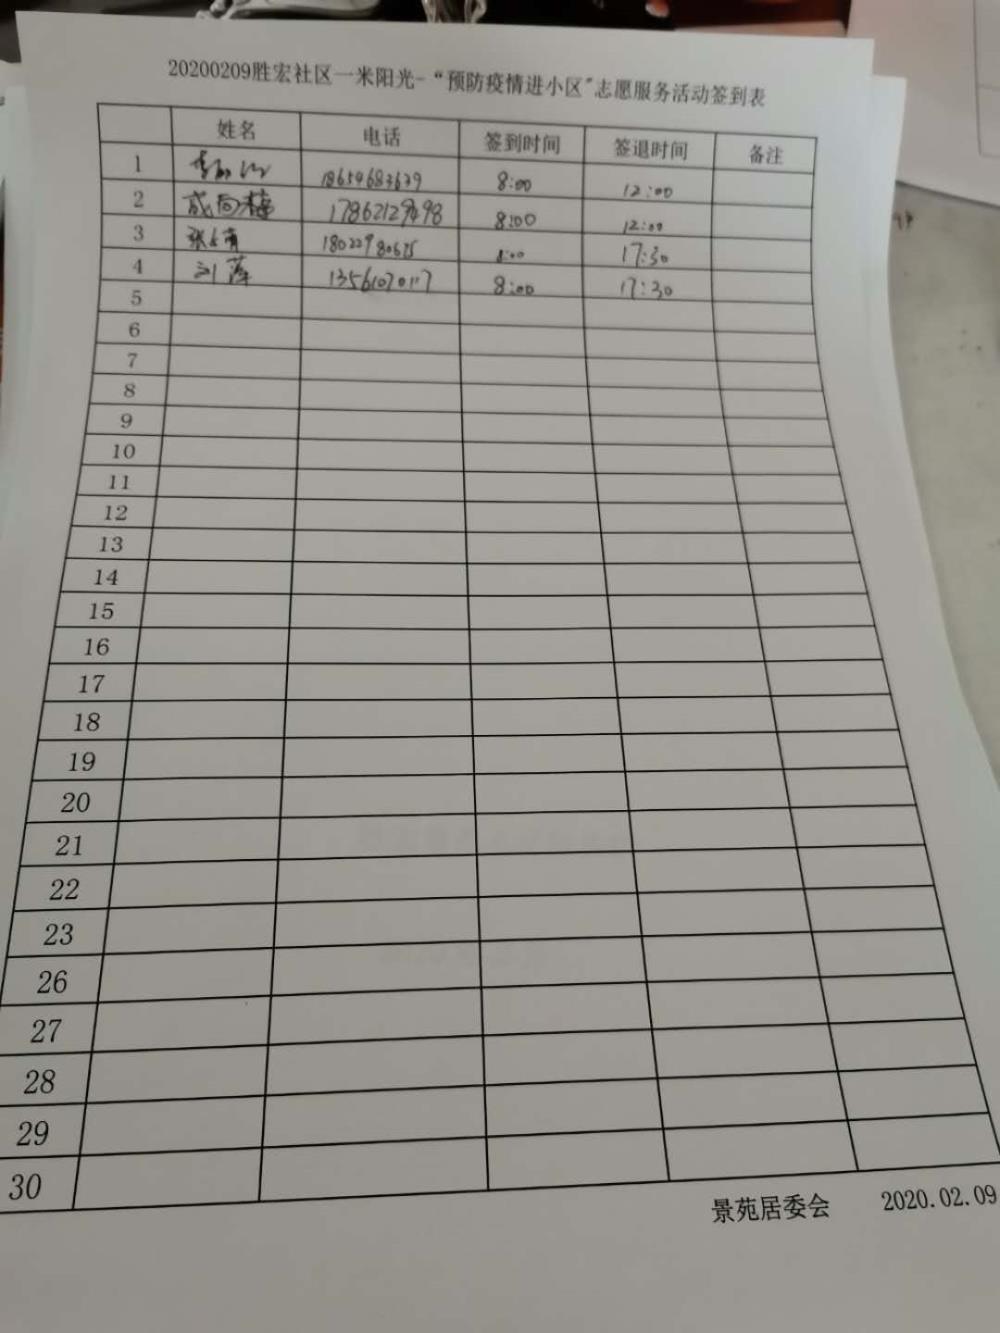 20200209胜宏社区一米阳光-“预防疫情进小区”志愿服务活动签到表
姓名 电话 签到时间 签退时间 备注
1 18659683639 8:00 12:00
2 成向梅 17862129498 8:00 12:00
3 8:00 17:30
4 刘萍 13561070117 8:00 17:30
5
6
7
8
9
10
11
12
13
14
15
16
17
18
19
20
21
22
23
26
27
28
29
30
景苑居委会 2020.02.09